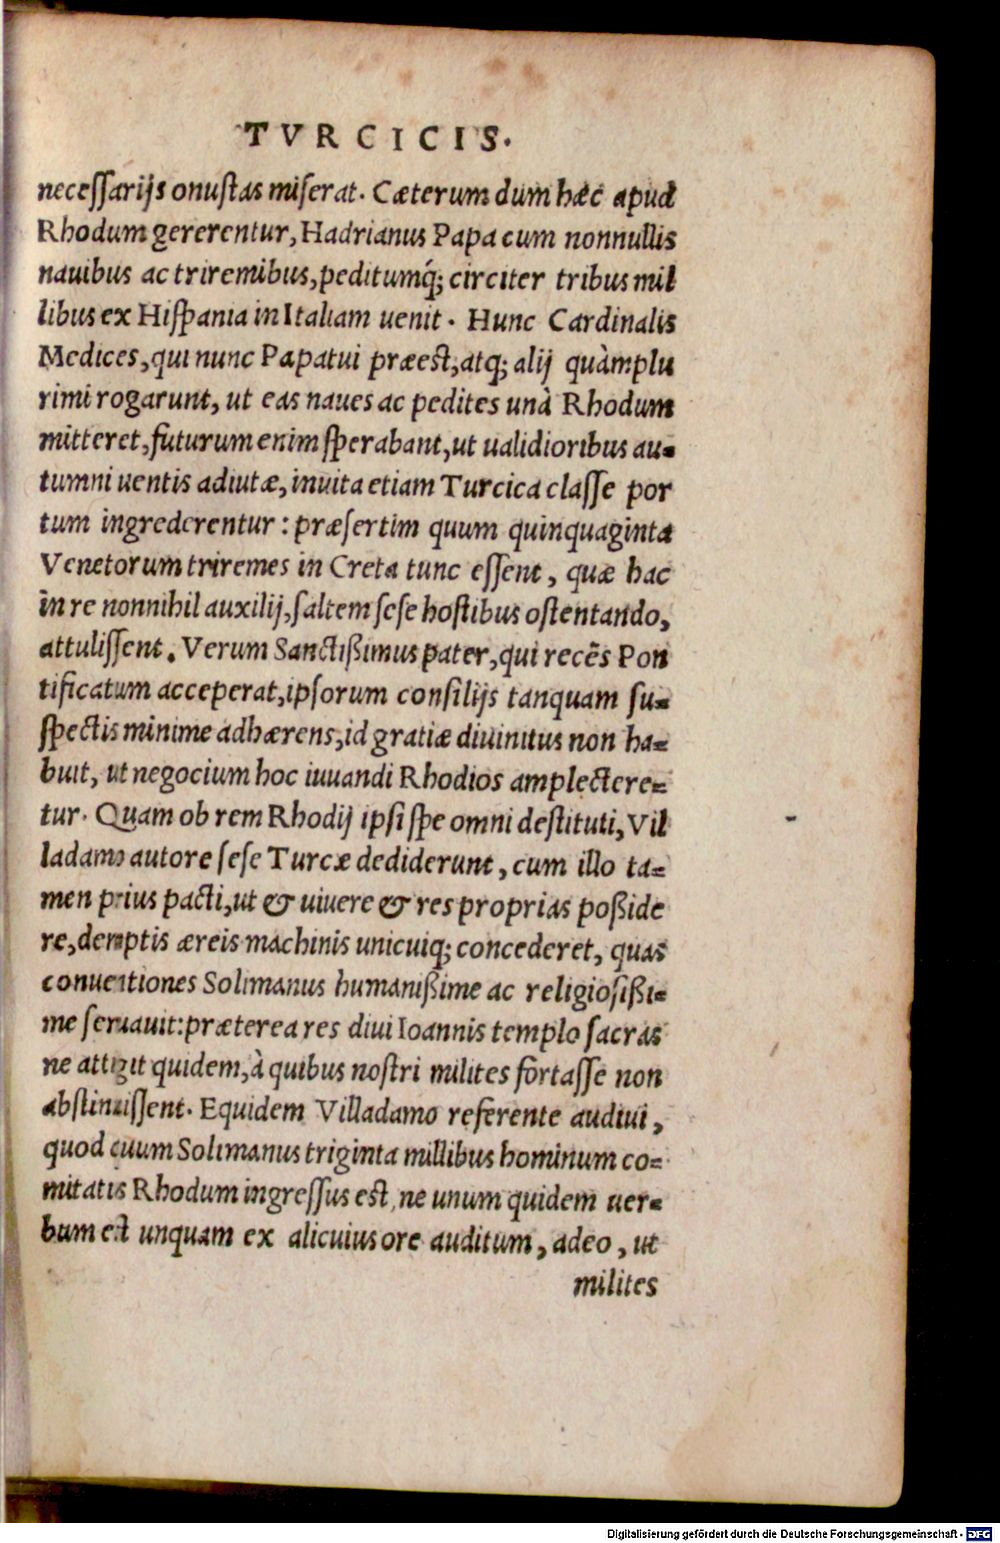 TVRCICIS.
necessarijs onustas miserat. Cæterum dum hæc apud
Rhodum gererentur, Hadrianus Papa cum nonnullis
nauibus ac triremibus, peditumq́; circiter tribus mil
libus ex Hispania in Italiam uenit. Hunc Cardinalis
Medices, qui nunc Papatui præest, atq; alij quàmplu
rimi rogarunt, ut eas naues ac pedites unà Rhodum
mitteret, futurum enim sperabant, ut ualidioribus au-
tumni uentis adiutæ, inuita etiam Turcica classe por
tum ingrederentur: præsertim quum quinquaginta
Venetorum triremes in Creta tunc essent, quæ hac
in re nonnihil auxilij, saltem sese hostibus ostentando,
attulissent. Verum Sanctißimus pater, qui recẽs Pon
tificatum acceperat, ipsorum consilijs tanquam su-
spectis minime adhærens, id gratiæ diuinitus non ha-
buit, ut negocium hoc iuuandi Rhodios amplectere-
tur. Quam ob rem Rhodij ipsi spe omni destituti, Vil
ladamo autore sese Turcæ dediderunt, cum illo ta-
men prius pacti, ut & uiuere & res proprias poßide
re, demptis æreis machinis unicuiq; concederet, quas
conuentiones Solimanus humanißime ac religiosißi-
me seruauit: præterea res diui Ioannis templo sacras
ne attigit quidem, à quibus nostri milites fortasse non
abstinuissent. Equidem Villadamo referente audiui,
quod cuum Solimanus triginta millibus hominum co-
mitatus Rhodum ingressus est, ne unum quidem uer-
bum est unquam ex alicuius ore auditum, adeo, ut
milites
Digitalisierung gefördert durch die Deutsche Forschungsgemeinschaft - DFG